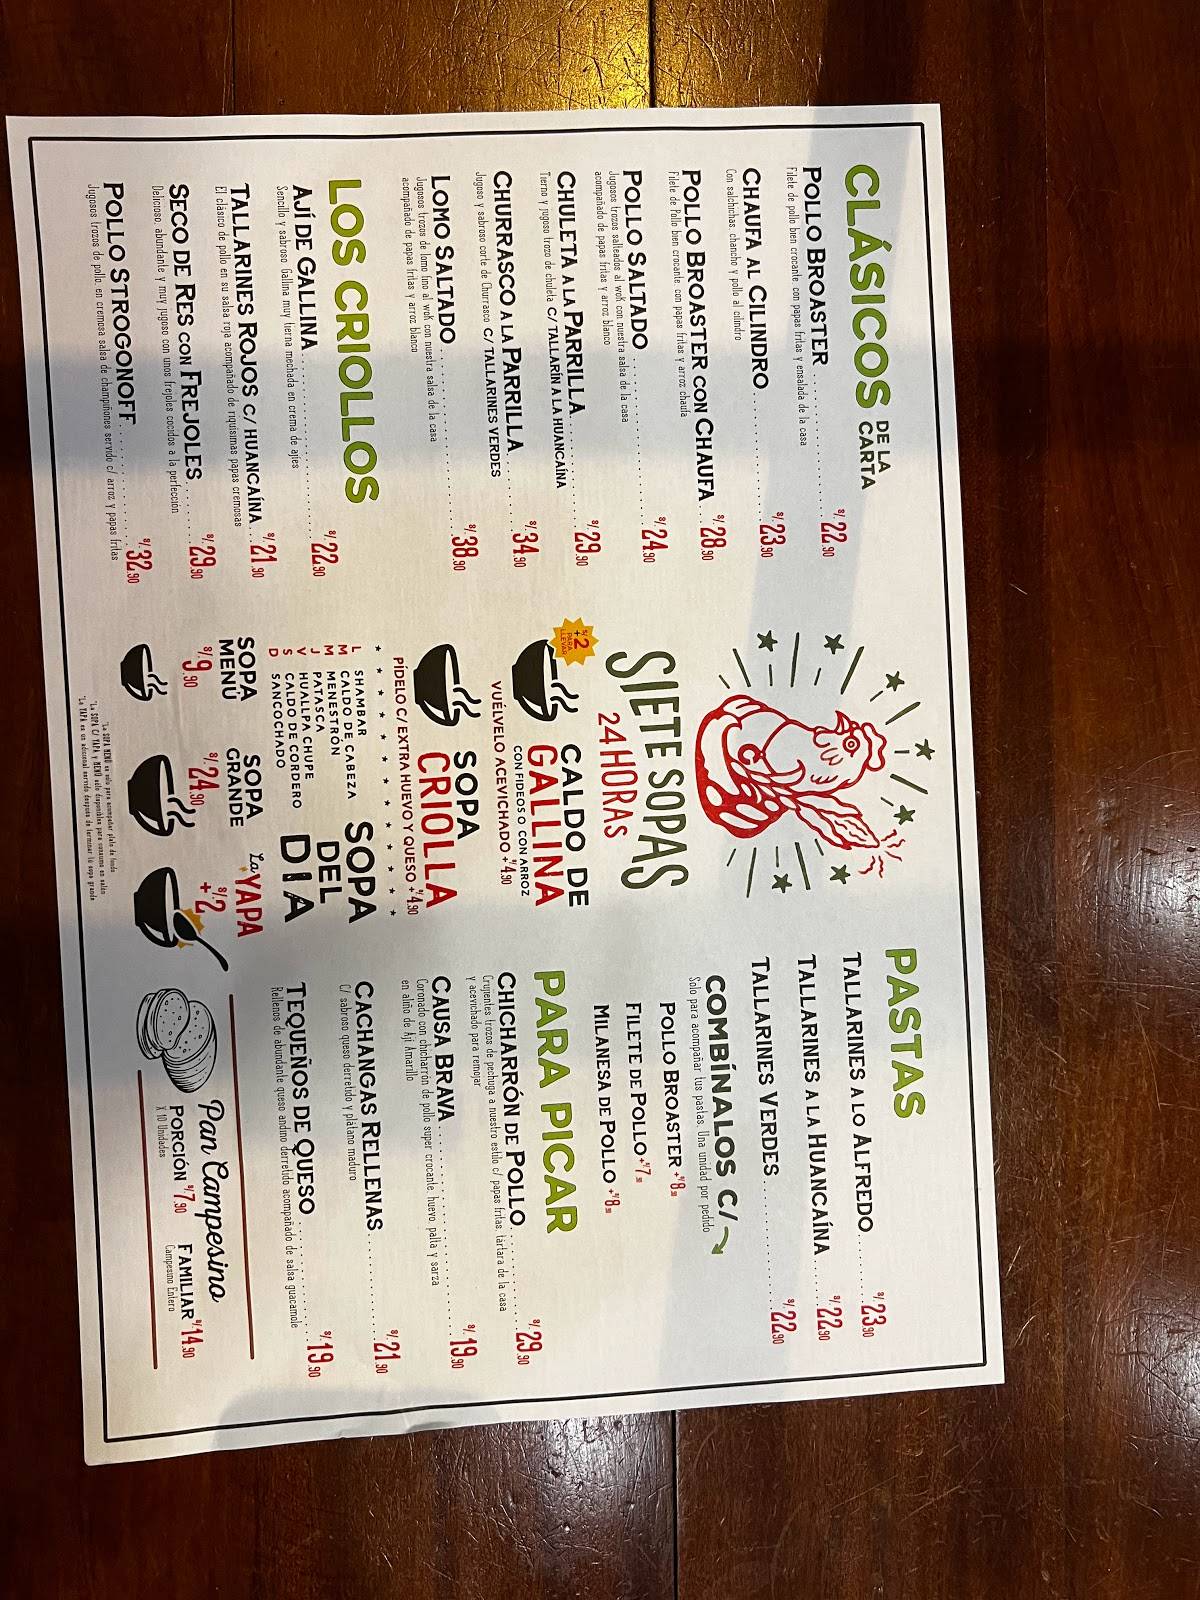 CLÁSICOS DE LA CARTA
POLLO BROASTER S/.22.90
Filete de pollo bien crocante con papas fritas y ensalada de la casa
CHAUFA AL CILINDRO S/.23.90
Con salchichas, chancho y pollo al cilindro
POLLO BROASTER CON CHAUFA S/.28.90
Filete de Pollo bien crocante con papas fritas y arroz chaufa
POLLO SALTADO S/.24.90
Jugosos trozos salteados al wok con nuestra salsa de la casa
acompañado de papas fritas y arroz blanco
CHULETA A LA PARRILLA S/.29.90
Tierno y jugoso trozo de chuleta C/ TALLARÍN A LA HUANCAÍNA
CHURRASCO A LA PARRILLA S/.34.90
Jugoso y sabroso corte de Churrasco C/ TALLARINES VERDES
LOMO SALTADO S/.38.90
Jugosos trozos de lomo fino al wok con nuestra salsa de la casa
acompañado de papas fritas y arroz blanco
LOS CRIOLLOS
AJÍ DE GALLINA S/.22.90
Sencillo y sabroso. Gallina muy tierna mechada en crema de ajíes
TALLARINES ROJOS C/ HUANCAÍNA S/.21.90
El clásico de pollo en su salsa roja acompañado de riquísimas papas cremosas
SECO DE RES CON FREJOLES S/.29.90
Delicioso, abundante y muy jugoso con unos frejoles cocidos a la perfección
POLLO STROGONOFF S/.32.90
Jugosos trozos de pollo, en cremosa salsa de champiñones servido c/ arroz y papas fritas
SIETE SOPAS
24 HORAS
S/ +2 PARA LLEVAR
CALDO DE
GALLINA
CON FIDEOS O CON ARROZ
VUÉLVELO ACEVICHADO +S/4.90
SOPA
CRIOLLA
PÍDELO C/ EXTRA HUEVO Y QUESO +S/4.90
L SHAMBAR
M CALDO DE CABEZA
M MENESTRON
J PATASCA
V HUALLPA CHUPE
S CALDO DE CORDERO
D SANCOCHADO
SOPA
DEL
DÍA
SOPA
MENÚ
S/9.90
SOPA
GRANDE
S/.24.90
La YAPA
S/ +2
*La SOPA MENÚ es solo para acompañar plato de fondo
*La SOPA C/ YAPA y MENÚ sólo disponibles para consumo en salón
*La YAPA es un adicional servido después de terminar tu sopa grande
PASTAS
TALLARINES A LO ALFREDO S/.23.90
TALLARINES A LA HUANCAÍNA S/.22.90
TALLARINES VERDES S/.22.90
COMBÍNALOS C/
Solo para acompañar tus pastas. Una unidad por pedido
POLLO BROASTER +S/8.90
FILETE DE POLLO +S/7.90
MILANESA DE POLLO +S/8.90
PARA PICAR
CHICHARRÓN DE POLLO S/.29.90
Crujientes trozos de pechuga a nuestro estilo c/ papas fritas, tártara de la casa
y acevichado para remojar
CAUSA BRAVA S/.19.90
Coronado con chicharrón de pollo super crocante, huevo, palta y sarza
en aliño de Ají Amarillo
CACHANGAS RELLENAS S/.21.90
C/ sabroso queso derretido y plátano maduro
TEQUEÑOS DE QUESO S/.19.90
Rellenos de abundante queso andino derretido acompañado de salsa guacamole
Pan Campesino
PORCIÓN S/7.90
X 10 Unidades
FAMILIAR S/14.90
Campesino Entero